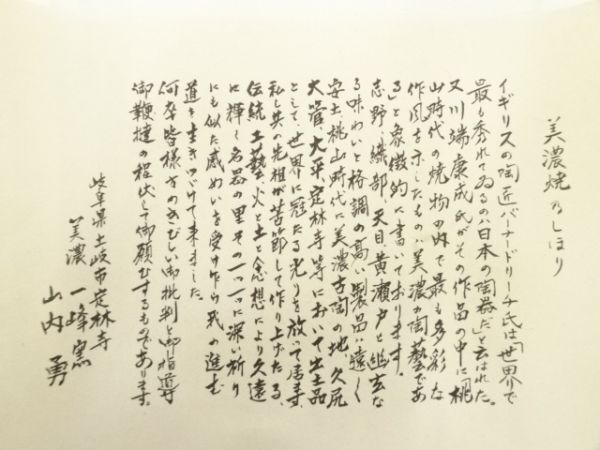 美濃焼のしほり
イギリスの陶匠バーナードリーチ氏は「世界で
最も秀れてゐるのは日本の陶器だ」と云はれた。
又川端康成氏がその作品の中に「桃
山時代の焼物の内で最も多彩な
作風を示したものは美濃の陶藝であ
る」と象徴的に書いております。
志野、織部、天目、黄瀬戸と幽玄な
る味わいと格調の高い製品は遠く
安土、桃山時代に美濃古陶の地、久尻
大萱、大平、定林寺等において出土品
として、世界に冠たる光りを放って居ます。
私し共の先祖が苦節して作り上げたる、
伝統工藝、火と土と念想により久遠
に輝く名器の里その一つ一つに深い祈り
にも似た感めいを受け乍ら我の進む
道を生きつづけて来ました。
何卒皆様方のきびしい御批判と御指導
御鞭撻の程伏して御願いするものであります。
岐阜県土岐市定林寺
美濃 一峰窯
山内 勇